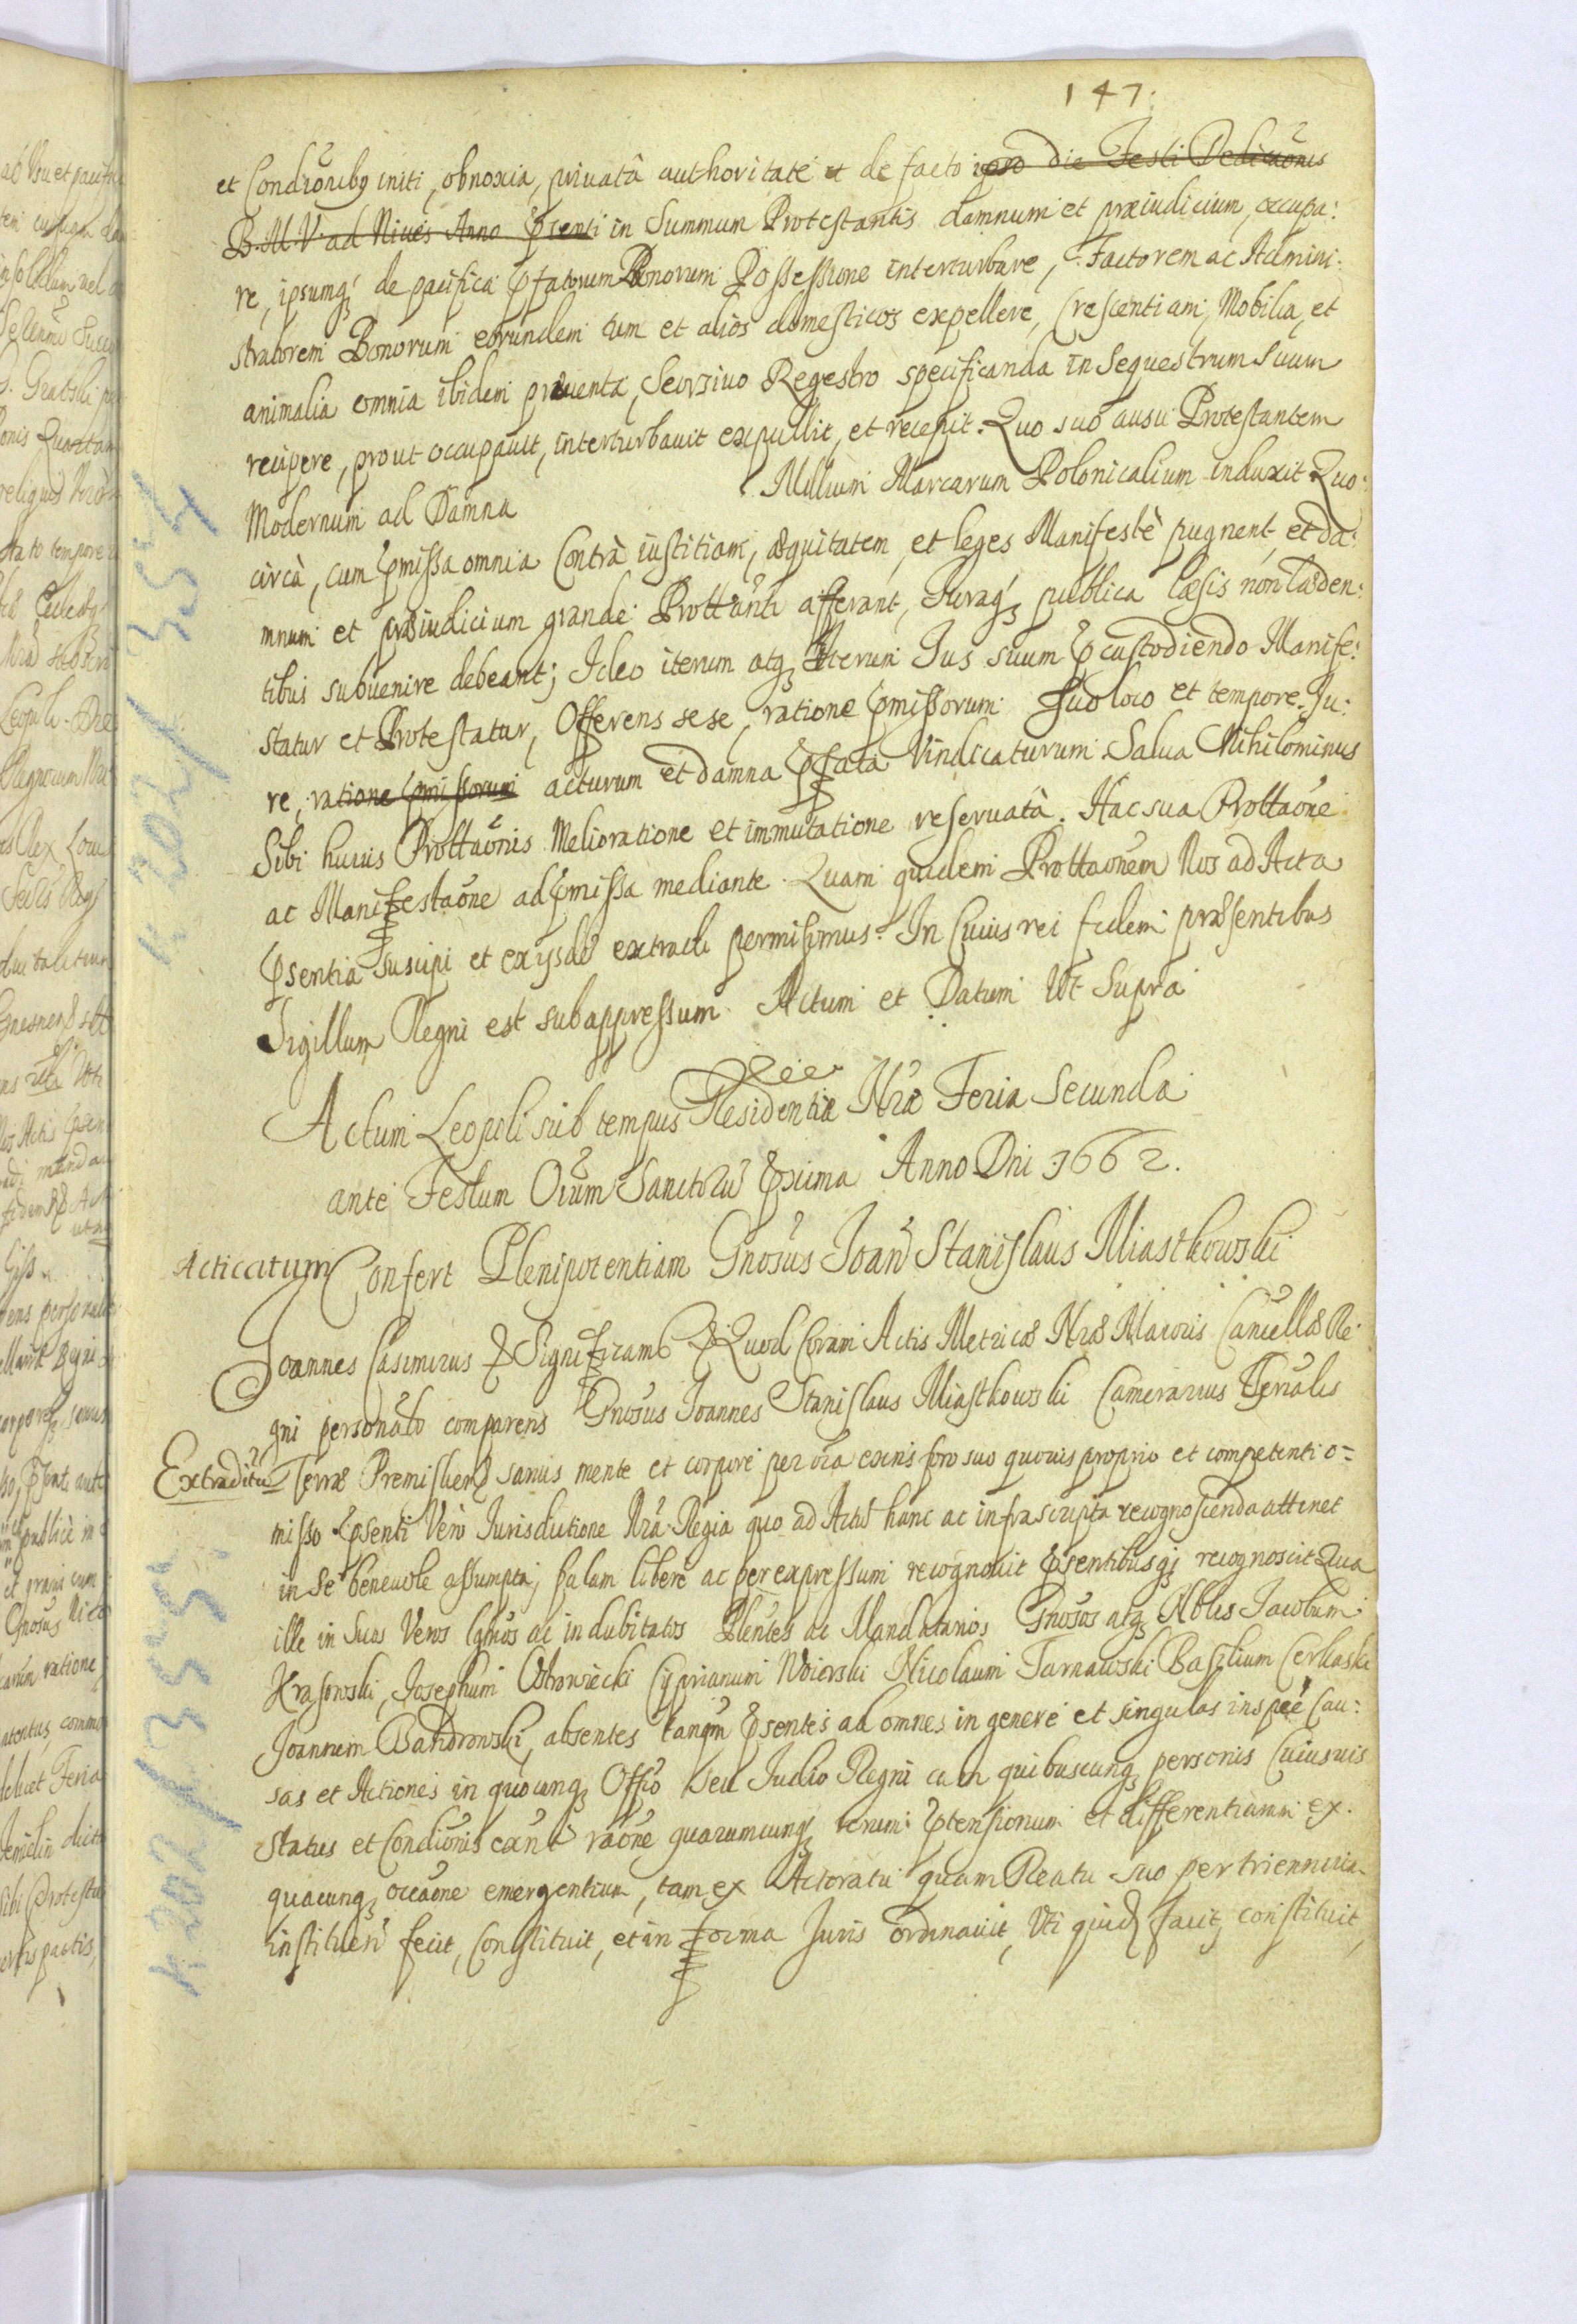 147.
et Condiõnibq initi, obnoxia, priuatâ authoritate et de facto ipso die Festi Dedicaõnis
B. M. V. ad Niues Anno pñsenti in Summum Protestantis damnum et præiudicium, occupa:
re, ipsumq́ de pacifica pfatorum Bonorum Possessione interturbare, Factorem ac Admini:
stratorem Bonorum eorundem tum et alios domesticos expellere, Crescentiam, Mobilia, et
animalia omnia ibidem inuenta, Seorsiuo Regestro specificanda in Sequestrum suum
recipere, prout occupauit, interturbauit expullit, et recepit. Quo suo ausu Protestantem
Modernum ad Damna Millium Marcarum Polonicalium induxit Quo:
circà, cum pmissa omnia Contrà iustitiam, æquitatem, et leges Manifestè pugnent, et da:
mnum et præiudicium grande Prottanti afferant, Iuraq́ publica læsis non læden:
tibus subuenire debeant; Ideo iterum atq Iterum Ius suum pcustodiendo Manife:
statur et Protestatur, Offerens sese, ratione pmissorum suo loco et tempore. Iu:
re, ratione pmissorum acturum et damna pfata Vindicaturum Salua Nihilominus
Sibi huius Prottaõnis Melioratione et immutatione reseruatâ. Hac sua Prottaõne
ac Manifestaõne ad pmissa mediante. Quam quidem Prottaõnem Nos ad Acta
psentia suscipi et ex ijsdẽ extradi permisimus. In Cuius rei fidem præsentibus
Sigillum Regni est subappressum. Actum et Datum Ut Supra
Actum Leopoli sub tempus Residentiæ Nræ Feria Secunda
ante Festum Oium Sanctorũ pxima Anno Dni 1662.
Acticatum Confert Plenipotentiam Gnosus Joañ Stanislaus Miastkowski
Joannes Casimirus & Significamus & Quod Coram Actis Metricæ Nræ Maioris Cancellæ Re:
gni personalr comparens Gnosus Joannes Stanislaus Miastkowski Camerarius Teřialis
Extraditũ Terræ Premislien sanus mente et corpore per oĩa exñis foro suo quouis proprio et competenti o=
misso psenti Verò Jurisdictione Nrâ Regia quo ad Actũ hunc ac infrascripta recognoscenda attinet
in Se beneuole assumpta, palam libere ac per expressum recognouit psentibusq recognoscit Qua
ille in Suos Veros lgttmos ac indubitatos Plentes ac Mandatarios Gnosos atq Nbles Jacobum
Krasowski, Josephum Ostrowiecki Cyprianum Woierski Nicolaum Tarnawski Basilium Cerkaski
Joannem Bandrowski, absentes tanqm psentes ad omnes in genere et singulas in spee Cau:
sas et Actiones in quocunq Offio seu Judio Regni cum quibuscunq personis Cuiusuis
Status et Condiõnis exñt raõne quarumcunq rerum ptensionum et differentiarum ex
quacunq occaõne emergentium, tam ex Actoratu quam Reatu suo per triennium
instituẽn fecit, Constituit, et in Forma Juris ordinauit, Uti quidẽ facit, constituit,
K 202/354
K 202/355